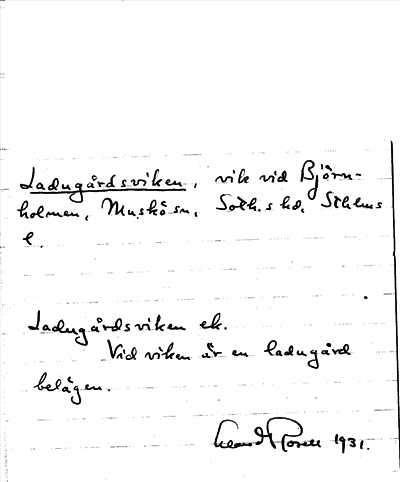 Ladugårdsviken, vik vid Björn-
holmen, Muskö sn, Soth.s hd, Sthlms
l.
Ladugårdsviken ek.
Vid viken är en ladugård
belägen.
1931.